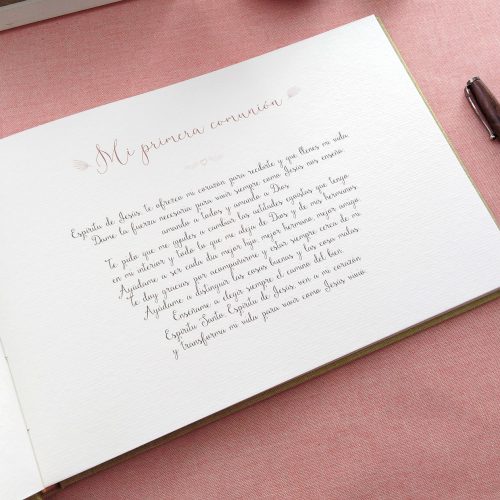 Mi primera comunión
Espíritu de Jesús, te ofrezco mi corazón para recibirte y que llenes mi vida.
Dame la fuerza necesaria para vivir siempre como Jesús nos enseñó,
amando a todos y amando a Dios.
Te pido que me ayudes a cambiar las actitudes egoístas que tengo
en mi interior y todo lo que me aleja de Dios y de mis hermanos.
Ayúdame a ser cada día mejor hijo, mejor hermano, mejor amigo.
Te doy gracias por acompañarme y estar siempre cerca de mí.
Ayúdame a distinguir las cosas buenas y las cosas malas.
Enséñame a elegir siempre el camino del bien.
Espíritu Santo, Espíritu de Jesús, ven a mi corazón
y transforma mi vida para vivir como Jesús vivió.